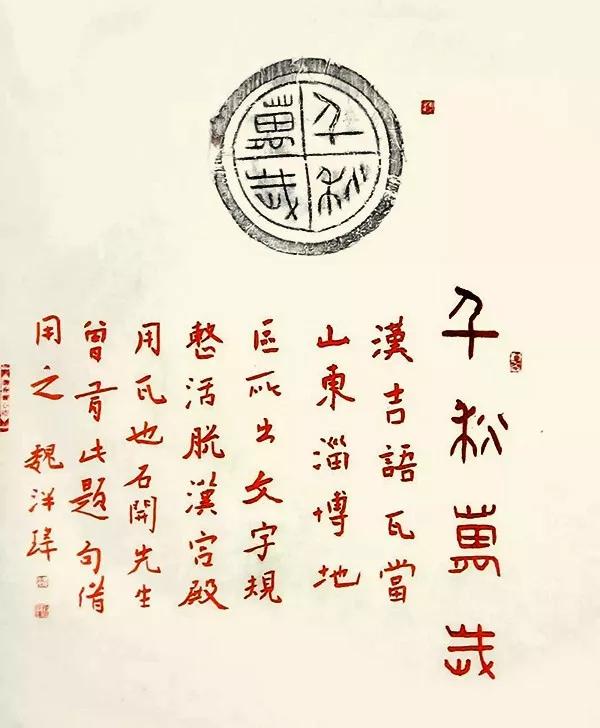 千秋
萬歲
千秋萬歲
漢吉語瓦當
山東淄博地
區所出文字規
整活脫漢宮殿
用瓦也石開先生
曾有此題句借
用之 魏洋瑋